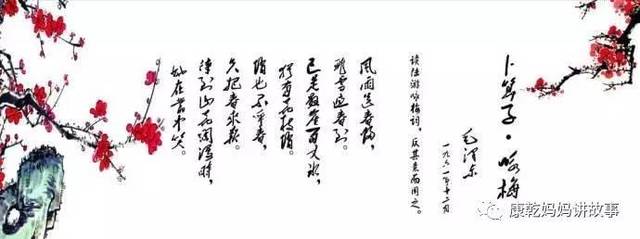 卜算子·咏梅
毛泽东
一九六一年十二月
读陆游咏梅词，反其意而用之。
风雨送春归，
飞雪迎春到。
已是悬崖百丈冰，
犹有花枝俏。
俏也不争春，
只把春来报。
待到山花烂漫时，
她在丛中笑。
康乾妈妈讲故事